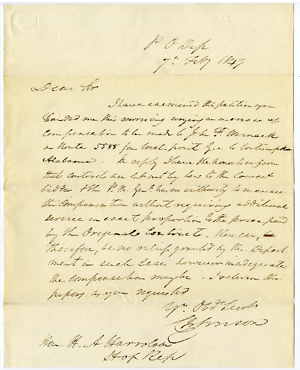 P O Dep
7th Feby 1849
Dear Sir
I have examined the petition you
handed me this morning urging an increase of
compensation to be made to John F.
on Route 5588 from West point Geo to
Alabama. In reply I have the honor to inform
that contracts are let out by law to the lowest
bidder & the P. M. Genl. has no authority to increase
the compensation without requiring additional
service in exact proportion to the price paid
by the Original Contract. There can,
therefore, be no relief granted by the Depart
ment in such cases however inadequate
the compensation may be. I return the
papers as you requested
Yr. Obt. Servt
C Johnson
Hon. H. A. Harralson
H of Rep